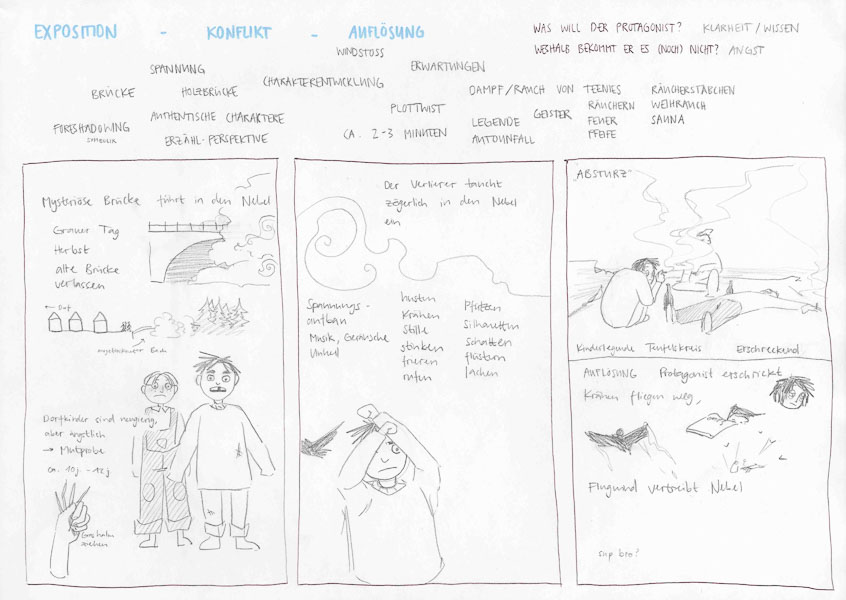 EXPOSITION - KONFLIKT - AUFLÖSUNG
WAS WILL DER PROTAGONIST? KLARHEIT/WISSEN
WESHALB BEKOMMT ER ES (NOCH) NICHT? ANGST
WINDSTOSS
SPANNUNG
ERWARTUNGEN
CHARAKTERENTWICKLUNG
BRÜCKE
HOLZBRÜCKE
DAMPF/RAUCH VON TEENIES
RÄUCHERSTÄBCHEN
PLOTTWIST
RÄUCHERN
WEIHRAUCH
AUTHENTISCHE CHARAKTERE
LEGENDE
GEISTER
FEUER
SAUNA
FORESHADOWING
SYMBOLIK
ERZÄHL-PERSPEKTIVE
CA. 2-3 MINUTEN
AUTOUNFALL
PFEIFE
Mysteriöse Brücke führt in den Nebel
Grauer Tag
Herbst
alte Brücke
verlassen
← Dorf
Dorfkinder sind neugierig,
aber ängstlich
→ Mutprobe
ca. 10j. - 12j
Grashalm
ziehen
Der Verlierer taucht
zögerlich in den Nebel
ein
Spannungs-
aufbau
Musik, Geräusche
Unheil
husten
Krähen
Stille
stinken
frieren
rufen
Pfützen
Silhouetten
schatten
flüstern
lachen
"ABSTURZ"
Kinderlegende Teufelskreis Erschreckend
AUFLÖSUNG Protagonist erschrickt
Krähen fliegen weg,
Flugwind vertreibt Nebel
sup bro?